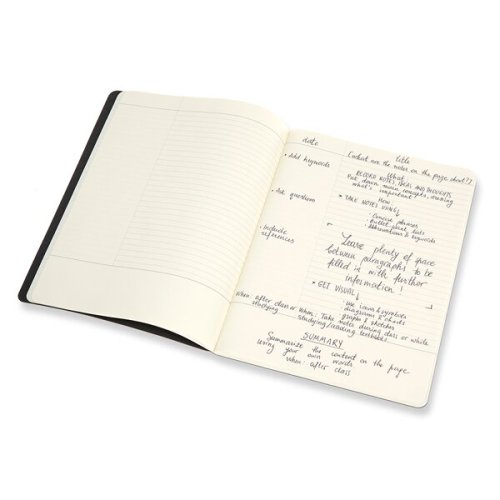 date
title
(What are the notes on the page about?)
• Add keywords
What
RECORD NOTES, IDEAS AND THOUGHTS
Put down main concepts, evening
what's important?
How
• Ask questions
• TAKE NOTES USING
Concise phrases
Bullet point lists
Abbreviations & keywords
• Include
references
Leave plenty of space
between paragraphs to be
filled in with further
information!
• GET VISUAL
Use icons & symbols
diagrams & charts
graphs & sketches
When: after class or when
studying
When: Take notes during class or while
studying/reading textbooks.
SUMMARY
Summarize the content on the page
using your own words
when: after class